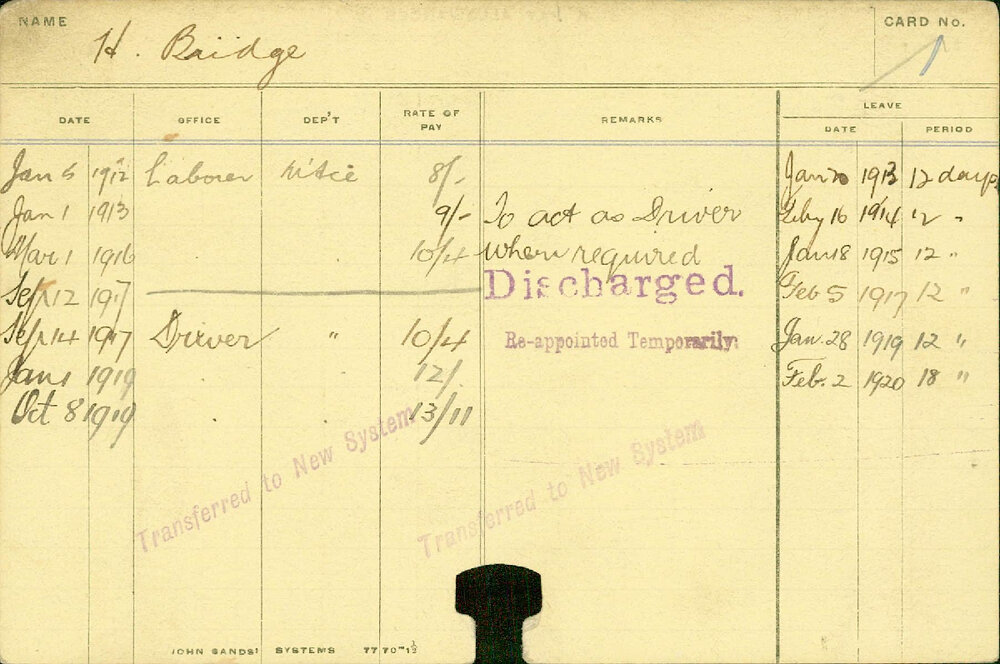 NAME H. Bridge CARD No. 1
DATE OFFICE DEP'T RATE OF PAY REMARKS LEAVE
DATE PERIOD
Jan 5 1912 Laborer 8/- Jan 20 1913 12 days
Jan 1 1913 9/- To act as Driver Feby 16 1914 12 "
Mar 1 1916 10/4 when required Jan 18 1915 12 "
Sept 12 1917 Discharged. Feb 5 1917 12 "
Sept 14 1917 Driver " 10/4 Re-appointed Temporarily. Jan. 28 1919 12 "
Jan 1 1919 12/ Feb. 2 1920 18 "
Oct 8 1919 13/11
Transferred to New System
Transferred to New System
JOHN SANDS' SYSTEMS